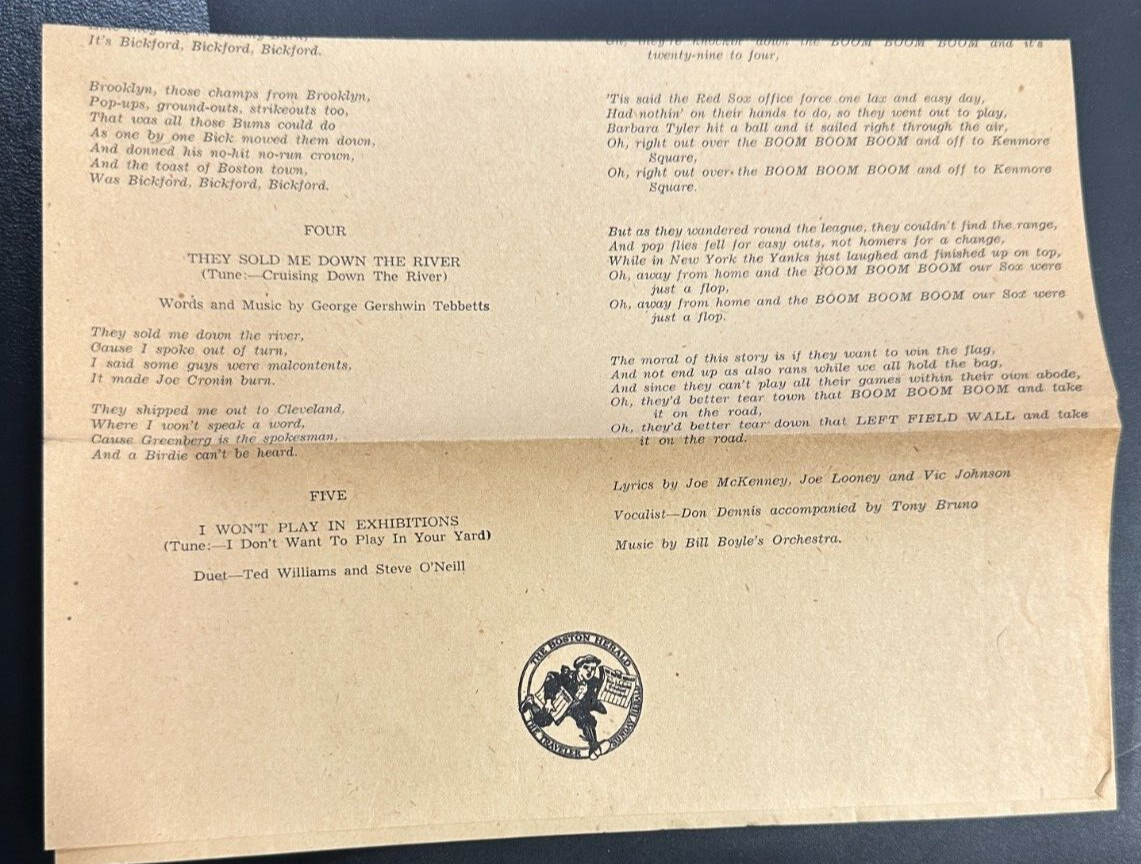 It's Bickford, Bickford, Bickford.
Brooklyn, those champs from Brooklyn,
Pop-ups, ground-outs, strikeouts too,
That was all those Bums could do
As one by one Bick mowed them down,
And donned his no-hit no-run crown,
And the toast of Boston town,
Was Bickford, Bickford, Bickford.
FOUR
THEY SOLD ME DOWN THE RIVER
(Tune:—Cruising Down The River)
Words and Music by George Gershwin Tebbetts
They sold me down the river,
Cause I spoke out of turn,
I said some guys were malcontents,
It made Joe Cronin burn.
They shipped me out to Cleveland,
Where I won't speak a word,
Cause Greenberg is the spokesman,
And a Birdie can't be heard.
FIVE
I WON'T PLAY IN EXHIBITIONS
(Tune:—I Don't Want To Play In Your Yard)
Duet—Ted Williams and Steve O'Neill
Oh, they're knockin' down the BOOM BOOM BOOM and it's
twenty-nine to four,
'Tis said the Red Sox office force one lax and easy day,
Had nothin' on their hands to do, so they went out to play,
Barbara Tyler hit a ball and it sailed right through the air,
Oh, right out over the BOOM BOOM BOOM and off to Kenmore
Square,
Oh, right out over the BOOM BOOM BOOM and off to Kenmore
Square.
But as they wandered round the league, they couldn't find the range,
And pop flies fell for easy outs, not homers for a change,
While in New York the Yanks just laughed and finished up on top,
Oh, away from home and the BOOM BOOM BOOM our Sox were
just a flop,
Oh, away from home and the BOOM BOOM BOOM our Sox were
just a flop.
The moral of this story is if they want to win the flag,
And not end up as also rans while we all hold the bag,
And since they can't play all their games within their own abode,
Oh, they'd better tear town that BOOM BOOM BOOM and take
it on the road,
Oh, they'd better tear down that LEFT FIELD WALL and take
it on the road.
Lyrics by Joe McKenney, Joe Looney and Vic Johnson
Vocalist—Don Dennis accompanied by Tony Bruno
Music by Bill Boyle's Orchestra.
THE BOSTON HERALD
SUNDAY HERALD
THE TRAVELER